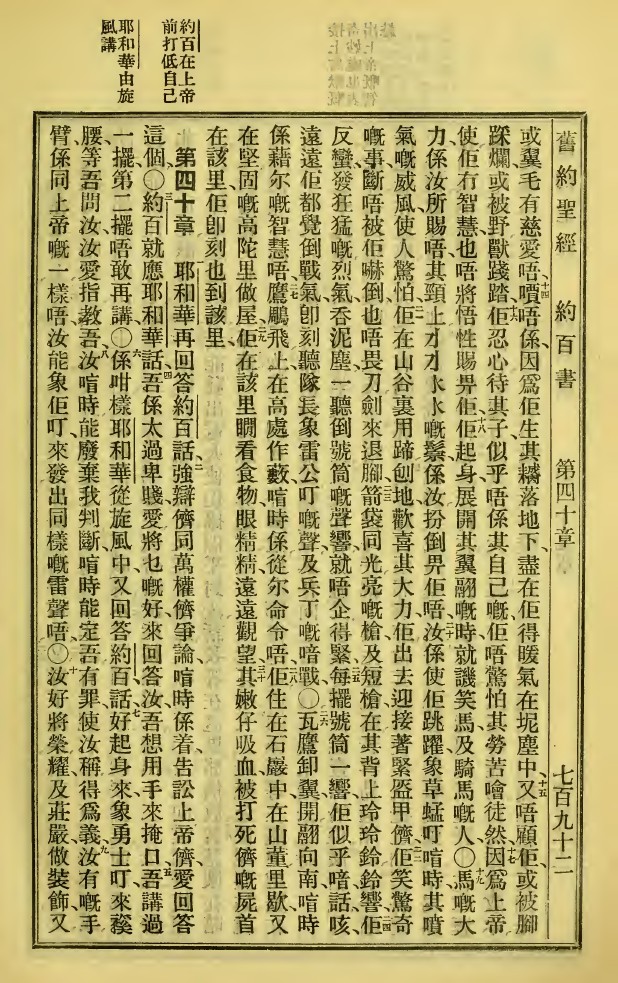 舊約聖經 約百書 第四十章 七百九十二
或翼毛有慈愛唔、嘳唔係、十四因爲佢生其落地下、盡在佢得暖氣在坭塵中、十五又唔顧佢、或被腳
踩爛或被野獸踐踏、十六佢忍心待其子、似乎唔係其自己嘅、佢唔驚怕其勞苦噲徒然、十七因爲上帝
使佢冇智慧、也唔將悟性賜畀佢、十八佢起身展開其翼翮嘅時、就譏笑馬及騎馬嘅人、〇十九馬嘅大
力係汝所賜唔、其頸上才才氺氺嘅鬃、係汝扮倒畀佢唔、二十汝係使佢跳躍象草蜢叮喧時、其噴
氣嘅威風使人驚怕、二一佢在山谷裏用蹄刨地、歡喜其大力、佢出去迎接著緊盔甲儕、二二佢笑驚奇
嘅事、斷唔被佢嚇倒、也唔畏刀劍來退腳、二三箭袋同光亮嘅槍及短槍、在其背上玲玲鈴鈴響、二四佢
反蠻發狂猛嘅烈氣吞泥塵、一聽倒號筒嘅聲響、就唔企得緊、二五每擺號筒一響、佢似乎喑話咳、
遠遠佢都覺倒戰氣、卽刻聽隊長象雷公叮嘅聲、及兵丁嘅喑戰、〇二六瓦鷹卸翼開翮向南喧時
係藉尔嘅智慧唔、二七鷹鵰飛上、在高處作藪、喧時係從尔命令唔、二八佢住在石巖中、在山董里歇、又
在堅固嘅高陀里做屋、二九佢在該里瞯看食物、眼精精遠遠觀望、三十其嫩仔吸血、被打死儕嘅屍首
在該里、佢卽刻也到該里、
第四十章 耶和華再回答約百話、二強辯儕同萬權儕爭論喧時係着、告訟上帝儕、愛回答
這個、〇三約百就應耶和華話、四吾係太過卑賤、愛將乜嘅好來回答汝、吾想用手來掩口、五吾講過
一擺、第二擺唔敢再講、〇六係咁樣耶和華從旋風中又回答約百話、七好起身來象勇士叮、來䙝
腰、等吾問汝、汝愛指教吾、八汝喧時能廢棄我判斷、喧時能定吾有罪、使汝稱得爲義、九汝有嘅手
臂係同上帝嘅一樣唔、汝能象佢叮來發出同樣嘅雷聲唔、〇十汝好將榮耀及莊嚴做裝飾、又
約百在上帝
前打低自己
耶和華由旋
風講